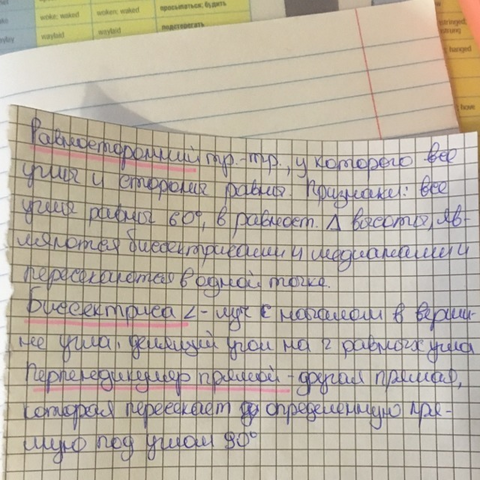 woke; waked
woken; waked
просыпаться; будить
waylaid
waylaid
подстерегать
Равносторонний тр.-тр., у которого все
углы и стороны равны. Признаки: все
углы равны 60°, в равност. Δ высоты, яв-
ляются биссектрисами и медианами и
пересекаются в одной точке.
Биссектриса ∠ - луч с началом в верши-
не угла, делящий угол на 2 равных угла
Перпендикуляр прямой - другая прямая,
которая пересекает определенную пря-
мую под углом 90°